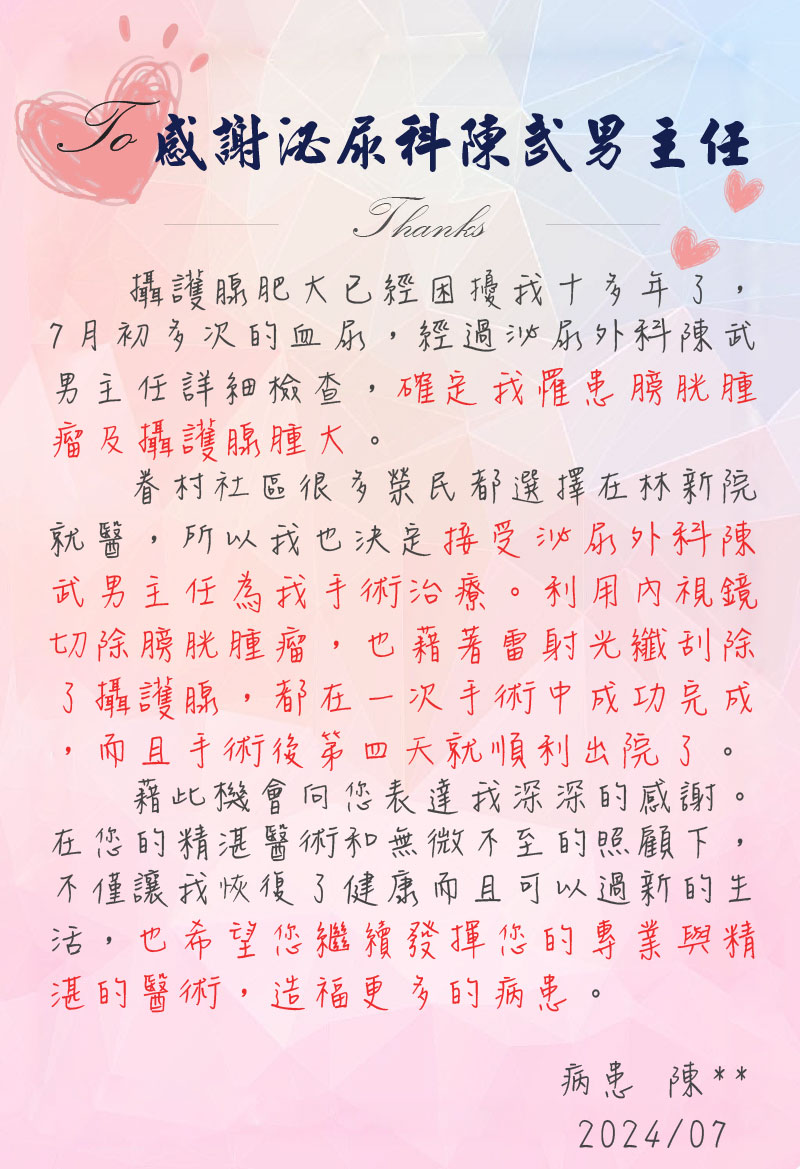 To 感謝泌尿科陳武男主任
Thanks
攝護腺肥大已經困擾我十多年了，
7月初多次的血尿，經過泌尿外科陳武
男主任詳細檢查，確定我罹患膀胱腫
瘤及攝護腺腫大。
眷村社區很多榮民都選擇在林新院
就醫，所以我也決定接受泌尿外科陳
武男主任為我手術治療。利用內視鏡
切除膀胱腫瘤，也藉著雷射光纖刮除
了攝護腺，都在一次手術中成功完成
，而且手術後第四天就順利出院了。
藉此機會向您表達我深深的感謝。
在您的精湛醫術和無微不至的照顧下，
不僅讓我恢復了健康而且可以過新的生
活，也希望您繼續發揮您的專業與精
湛的醫術，造福更多的病患。
病患 陳**
2024/07